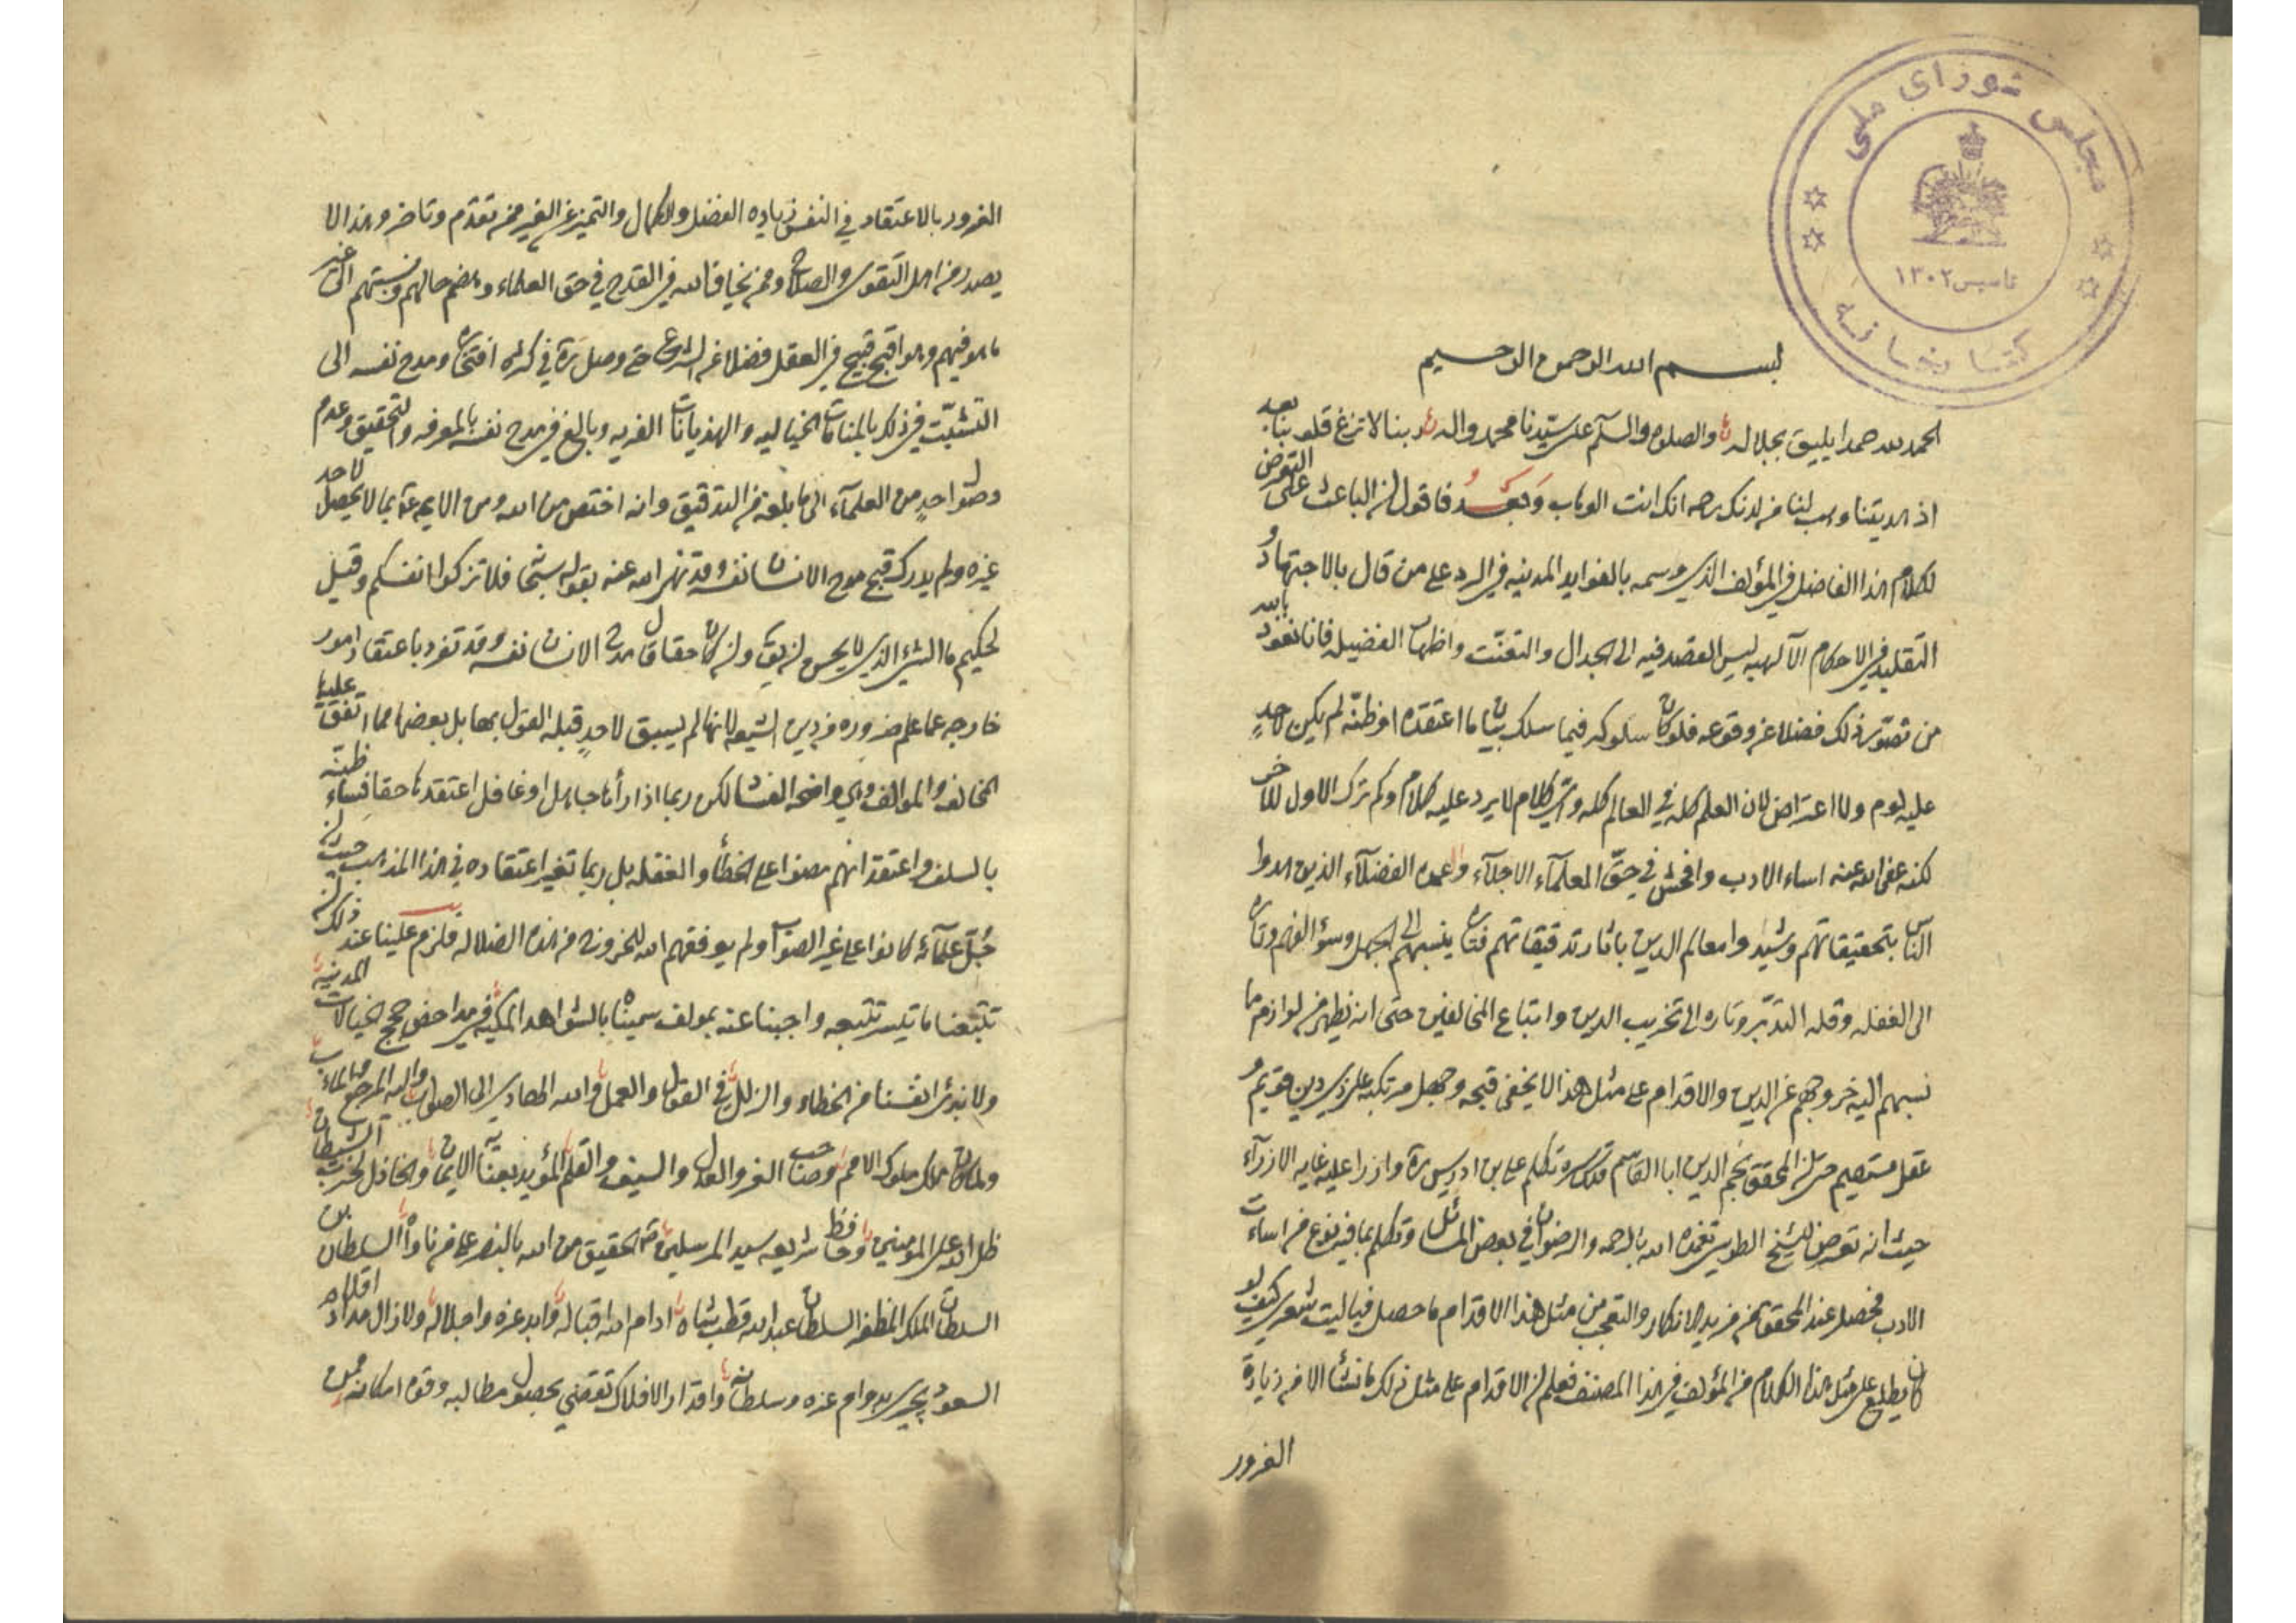 مجلس شورای ملی
تاسیس ۱۳۰۲
کتابخانه
بسم الله الرحمن الرحيم
الحمد لله حمدا يليق بجلاله والصلوه والسلم على سيّدنا محمد واله ربنا لا تزغ قلوبنا بعد
اذ هديتنا وهب لنا من لدنك رحمه انك انت الوهاب وَبَعدُ فاقول ان الباعث على التعرض
لكلام هذا الفاضل في المؤلف الذي وسمه بالفوايد المدنيه في الرد على من قال بالاجتهاد و
التقليد في الاحكام الآلهيه ليس القصد فيه الى الجدال والتعنّت واظهار الفضيله فانا نعوذ بالله
من تصوّر ذلك فضلا عن وقوعه فلو كان سلوكه فيما سلك بيان ما اعتقده او ظنّه لم يكن لاحدٍ
عليه لوم ولا اعتراض لان العلم كله في العالم كله واي كلام لا يرد عليه كلام وكم ترك الاول للآخر
لكنه عفى الله عنه اساء الادب وافحش في حقّ العلمآء الاجلآء والعمده الفضلآء الذين هدوا
الناس بتحقيقاتهم وشيدوا معالم الدين باثار تدقيقاتهم فتاره ينسبهم الى الجهل وسوء الفهم وتاره
الى الغفله وقله التدبّر وتاره الى تخريب الدين واتباع المخالفين حتى انه يظهر من لوازم ما
نسبهم اليه خروجهم عن الدين والاقدام على مثل هذا لا يخفى قبحه وجهل مرتكبه على ذي دين قويم و
عقل مستقيم حتى ان المحقق نجم الدين ابا القاسم قدس سره تكلم على بن ادريس مرة وازرا عليه غايه الازرآء
حيث انه تعرض للشيخ الطوسي تغمده الله بالرحمه والرضوان في بعض المسائل وتكلم بما فيه نوع من اساءت
الادب فحصل عند المحقق من مزيد الانكار والتعجب من مثل هذا الاقدام ما حصل فيا ليت شعري كيف لو
كان يطلع على مثل هذا الكلام من المؤلف في هذا المصنف فعلم ان الاقدام على مثل ذلك ما نشأ الا من زيادة
الغرور
الغرور بالاعتقاد في النفس زياده الفضل والكمال والتميز عن الغير ممن تقدّم وتاخر وهذا لا
يصدر من اهل التقوى والصلاح وممن يخاف الله في القدح في حق العلماء وهضم حالهم ونسبتهم الى غير
ما هو فيهم وهو اقبح قبيح في العقل فضلا عن الشرع حتى وصل مرة في كثره افتخاره ومدح نفسه الى
التشبّث في ذلك بالمنامات الخياليه والهذيانات الفريه وبالغ في مدح نفسه بالمعرفه والتحقيق وعدم
وصول واحدٍ من العلمآء الى ما بلغه من التدقيق وانه اختص من الله ومن الايمه بما لا يحصل لاحد
غيره ولم يدرك قبح مدح الانسان نفسه وقد نهى الله عنه بقوله سبحانه فلا تزكوا انفسكم وقيل
لحكيم ما الشيء الذي لا يحسن ان يقال وان كان حقا قال مدح الانسان نفسه وقد تفرد باعتقاد امور
خارجه عما علم ضروره من دين الشيعه لانها لم يسبق لاحدٍ قبله القول بها بل بعضها مما اتفق عليها
المخالف والموالف وهي واضحه الفساد لكن ربما اذا رآها جاهل او غافل اعتقدها حقا فساء ظنّه
بالسلف واعتقد انهم مضوا على الخطأ والغفله بل ربما تغير اعتقاده في هذا المذهب حيث ان
جُلّ علمآئه كانوا على غير الصواب ولم يوفقهم الله للخروج من هذه الضلاله فلزم علينا عند ذلك ان
تتبّعنا ما تيسر تتبعه واجبنا عنه بمولف سميناه بالشواهد المكيه في مداحض حجج الخيالات المدنيه
ولا نبرئ انفسنا من الخطاء والزلل في القول والعمل والله الهادي الى الصواب واليه المرجع والمآب
ولما كان ملك ملوك الامم وصاحب العز والعدل والسيف والقلم المؤيد بعناية الايمان والخاذل لحزب الشيطان
ظل الله على المؤمنين وحافظ شريعه سيد المرسلين الحقيق من الله بالنصر على من ناواه السلطان بن
السلطان الملك المظفر السلطان عبد الله قطب شاه ادام الله اقباله وابد عزه واجلاله ولا زال مداد اقلام
السعود يجري بدوام عزه وسلطانه واقدار الافلاك تقضي بحصول مطالبه وقوه امكانه ممن